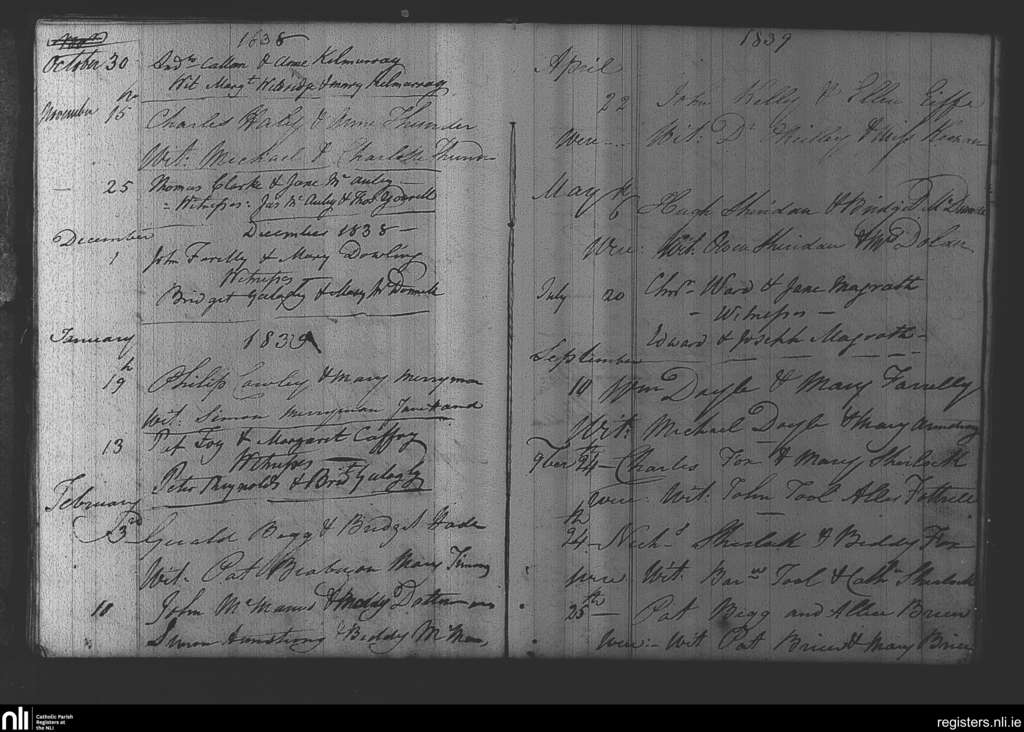 1838
October 30 Andw Callan & Anne Kilmurray
Wit Margt & Mary Kilmurray
November 15 Charles Haly & Anne Thunder
Wit: Michael & Charlotte Thunder
25 Thomas Clarke & Jane McAuley
Witnesses: Jas McAuley & Thos
December December 1838
1 John Farelly & Mary Dowling
Witnesses
Bridget Galagty & Mary McDonnell
January 1839
19th Philip Cowley & Mary Merryman
Wit: Simon Merryman Jane Hand
13 Pat Foy & Margaret Caffry
Witnesses
Peter Reynolds & Bridt Galagty
February
3rd Gerald Begg & Bridget Wade
Wit. Pat Brabazon Mary
10 John McManus & Biddy
Simon Armstrong & Biddy McMan
1839
April
22 John Kelly & Ellen Eiffe
were Wit: Dr Reilly & Miss
May 6th Hugh Sheridan & Bridget
Were: Wit. Owen Sheridan & Mrs Dolan
July 20 Chrisr Ward & Jane Magrath
Witnesses
Edward & Joseph Magrath
September
10 Wm Doyle & Mary Farrelly
Wit: Michael Doyle & Mary Armstrong
9ber 24th Charles Fox & Mary Sherlock
were: Wit: John Tool Alice Fottrell
24th Nichs Sherlock & Biddy Fox
were Wit: Barw Tool & Cathn Sherlock
25th Pat Begg and Alice Brien
Were: Wit Pat Brien & Mary Brien
nli
Catholic Parish
Registers at
the NLI
registers.nli.ie